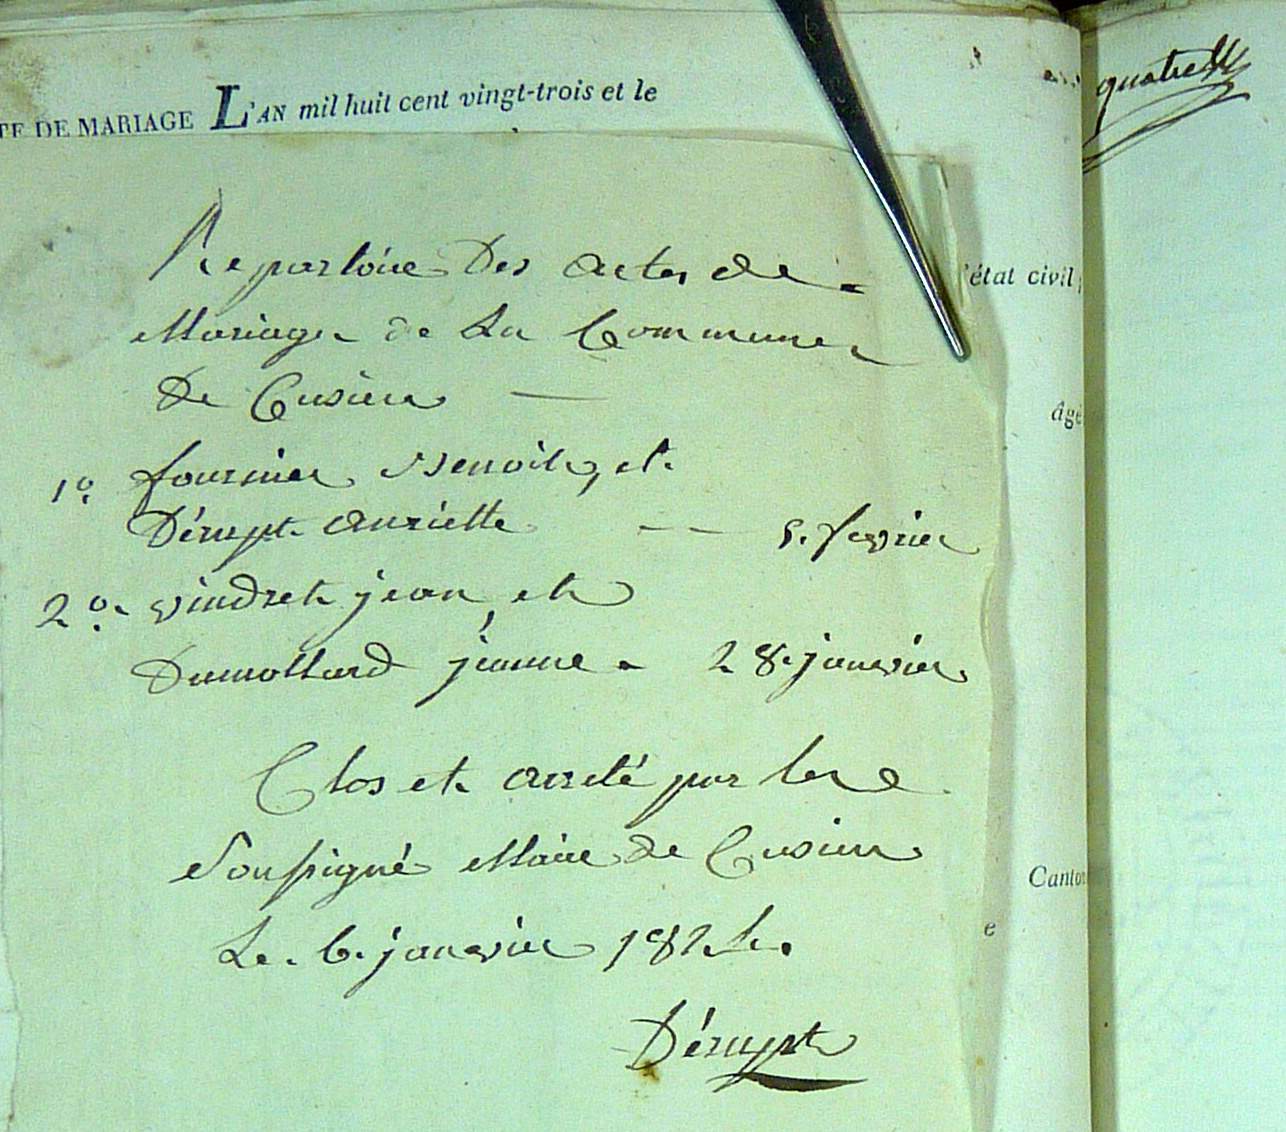 TE DE MARIAGE L'AN mil huit cent vingt-trois et le
quatre
Repartoire Des actes de
l'état civil
Mariage de La Commune
De Cusieu
âgé
1º fournier Benoit, et
Dérupt anriette — — 5. fevrier
2º vindret jean, et
Dumollard jeanne 28. janvier
Clos et arreté par le
Soussigné Maire de Cusieu
Canton
Le 6. janvier 1824.
e
Dérupt